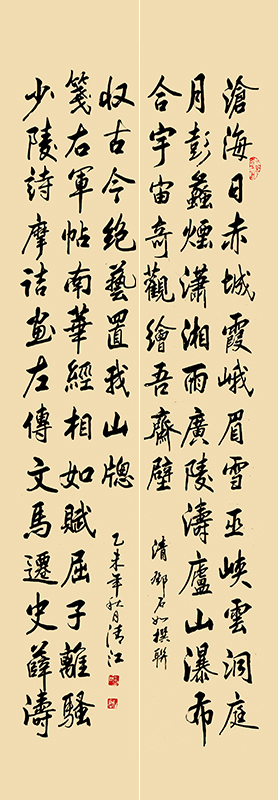 滄海日赤城霞峨眉雪巫峽雲洞庭
月彭蠡煙瀟湘雨廣陵濤廬山瀑布
合宇宙奇觀繪吾齋壁
清鄧石如撰聯
少陵詩摩詰畫左傳文馬遷史薛濤
箋右軍帖南華經相如賦屈子離騷
収古今絕藝置我山牕
乙未年秋月清江